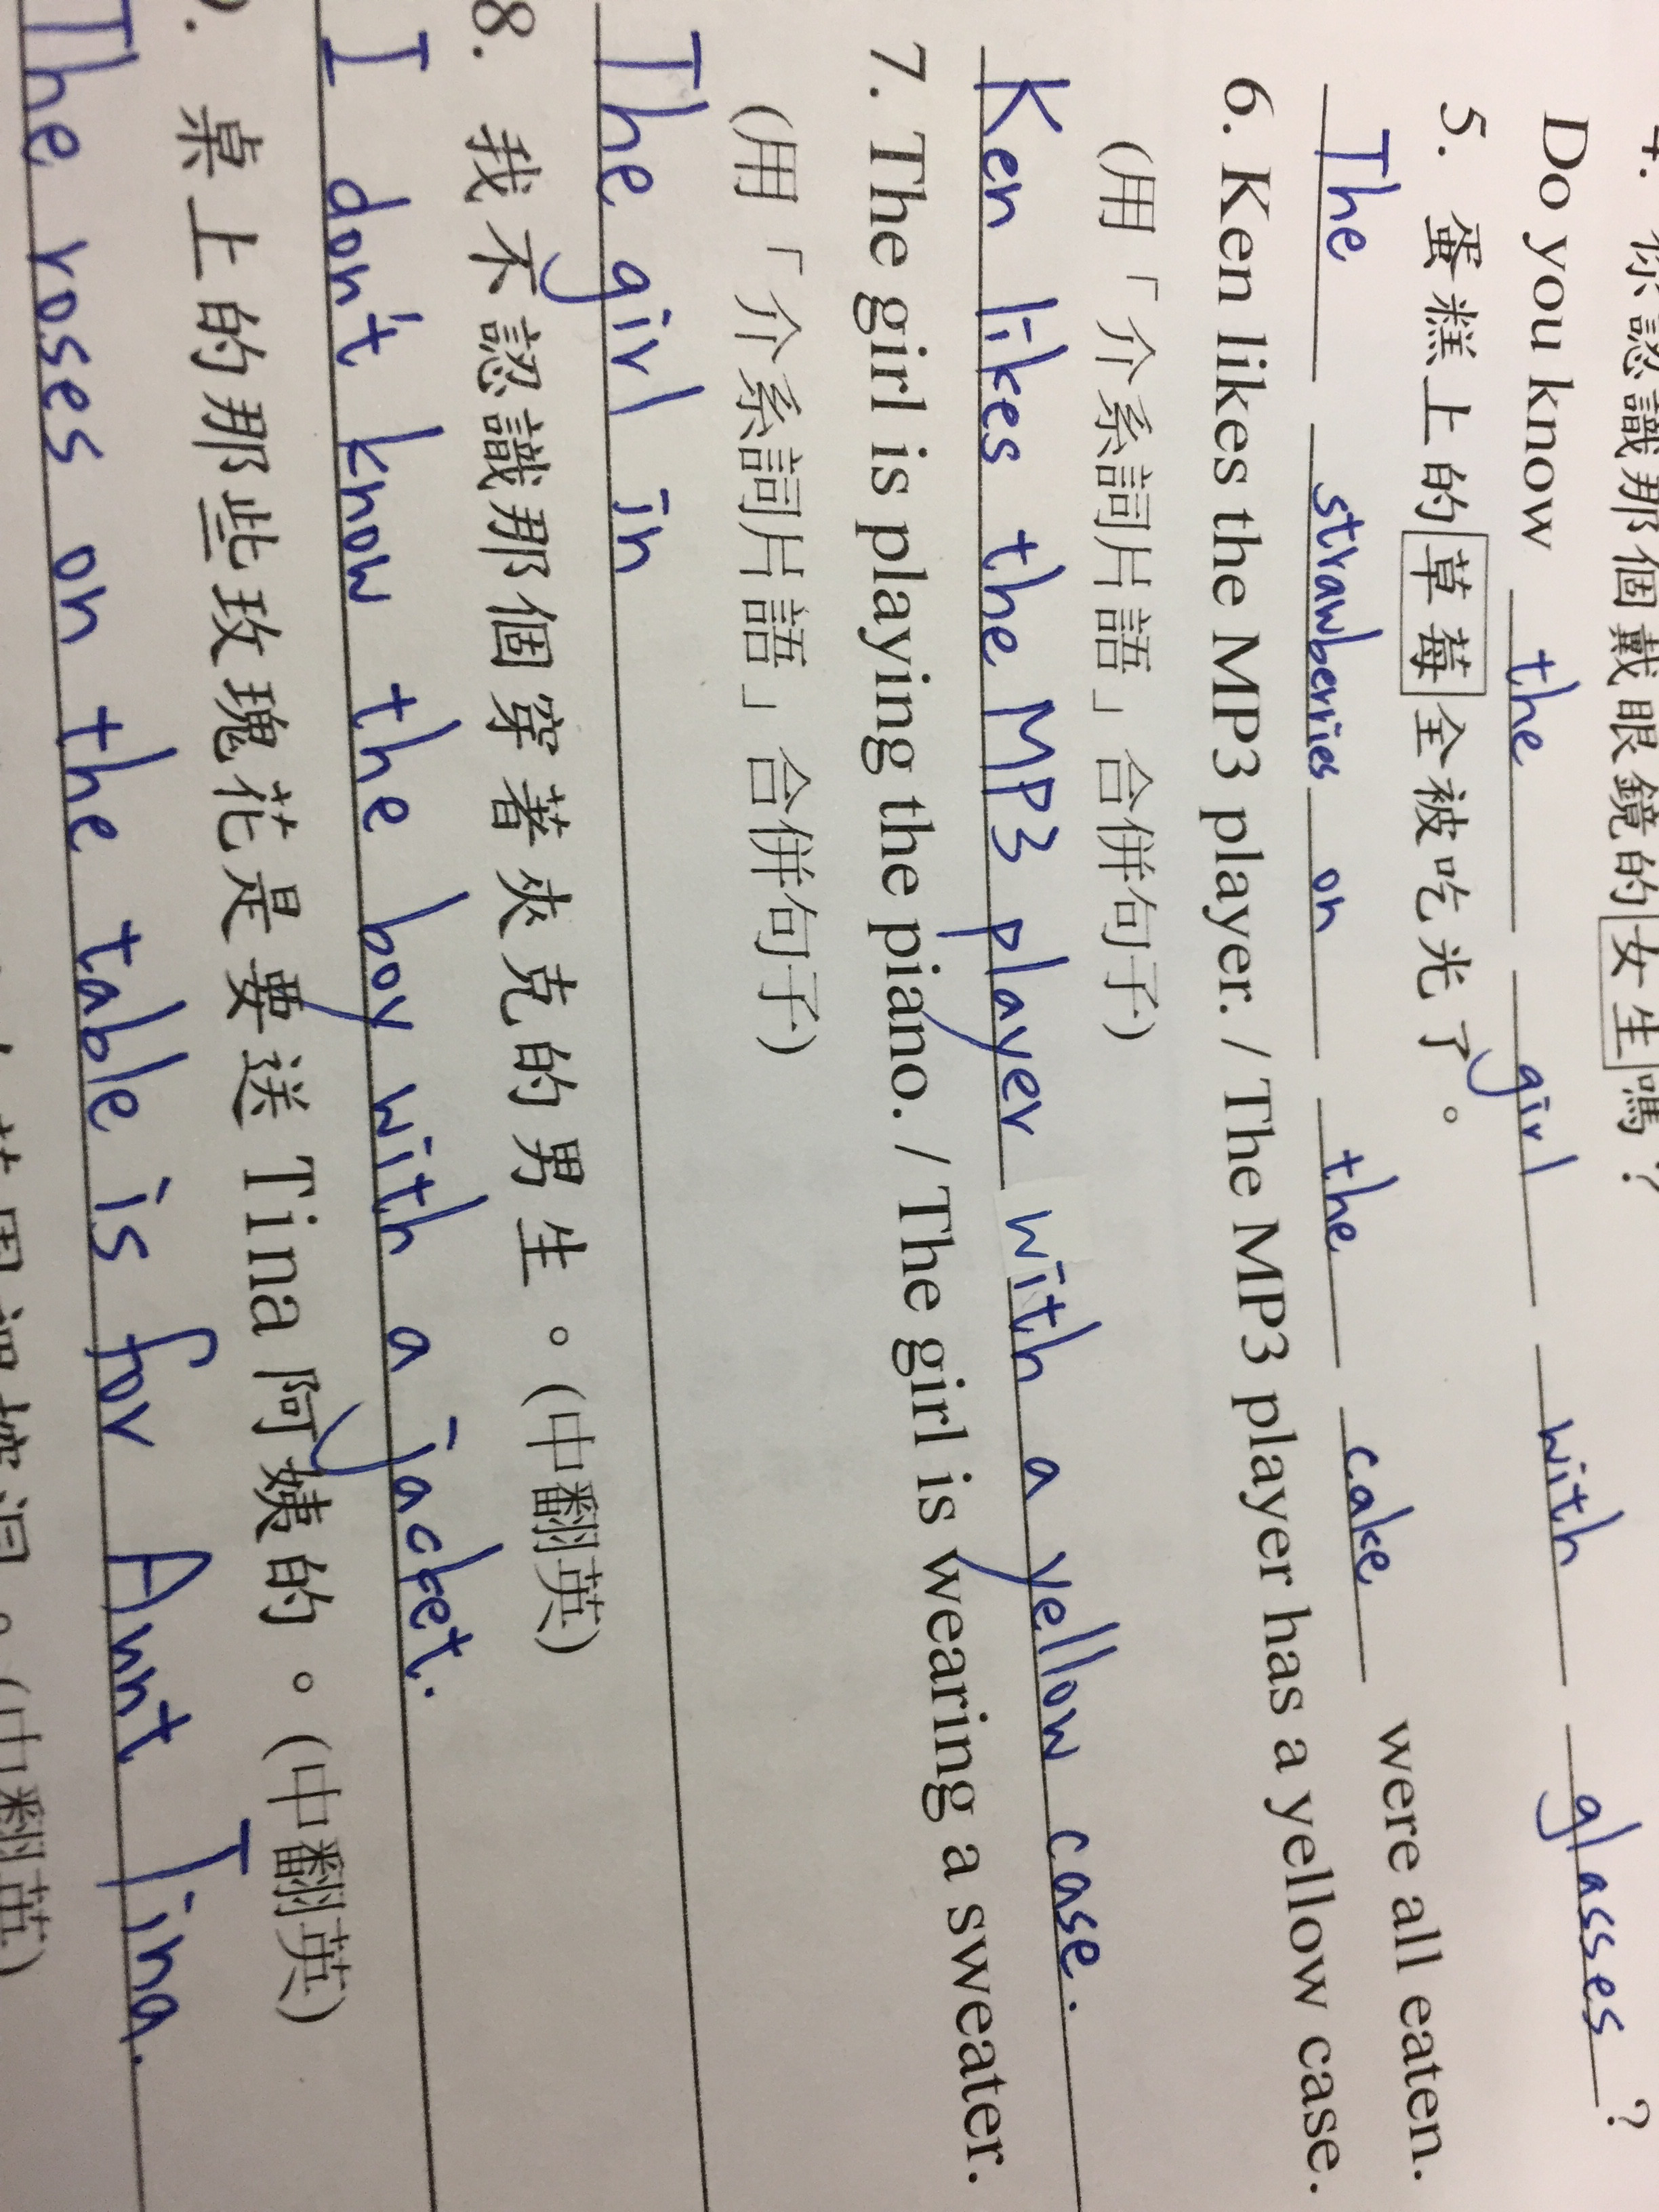 4. 你認識那個戴眼鏡的女生嗎?
Do you know the girl with glasses?
5. 蛋糕上的草莓全被吃光了。
The strawberries on the cake were all eaten.
6. Ken likes the MP3 player. / The MP3 player has a yellow case.
(用「介系詞片語」合併句子)
Ken likes the MP3 player with a yellow case.
7. The girl is playing the piano. / The girl is wearing a sweater.
(用「介系詞片語」合併句子)
The girl in
8. 我不認識那個穿著夾克的男生。(中翻英)
I don't know the boy with a jacket.
9. 桌上的那些玫瑰花是要送 Tina 阿姨的。(中翻英)
The roses on the table is for Aunt Tina.
(中翻英)